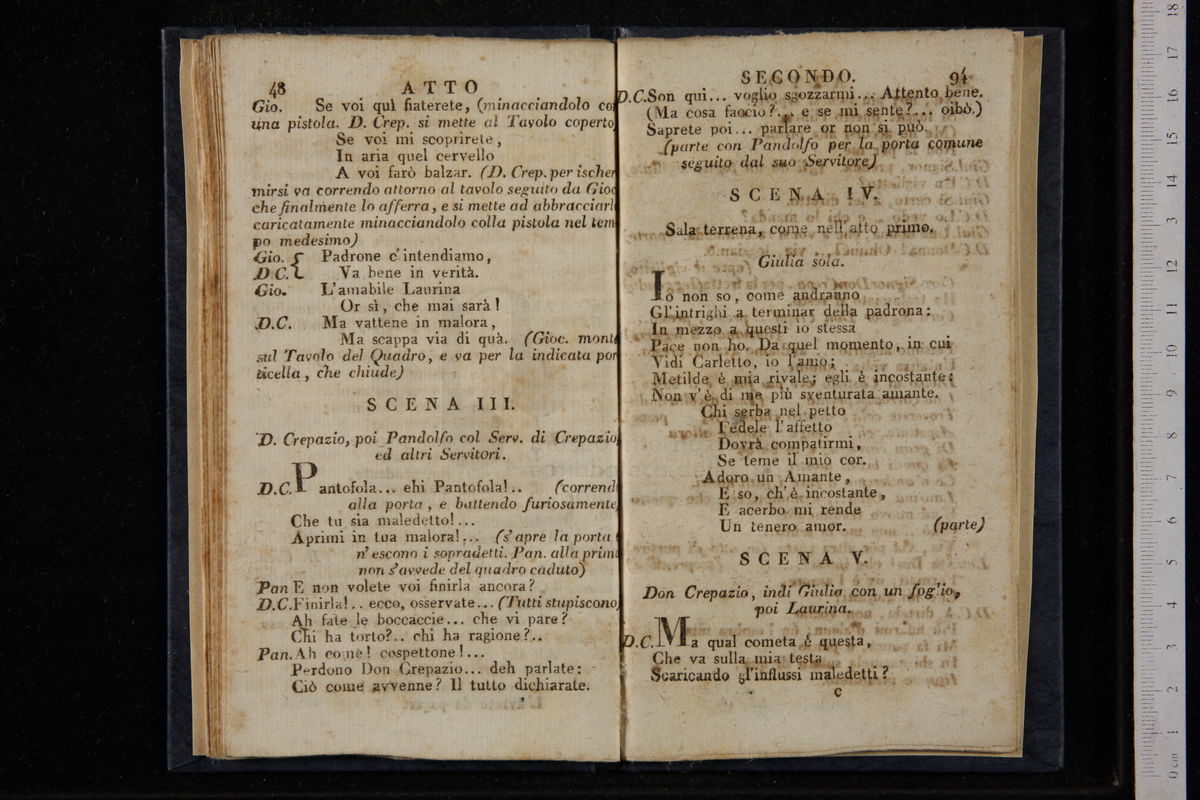 48 ATTO
Gio. Se voi quì fiaterete, (minacciandolo co
una pistola. D. Crep. si mette al Tavolo coperto
Se voi mi scoprirete,
In aria quel cervello
A voi farò balzar. (D. Crep. per ischer
mirsi va correndo attorno al tavolo seguito da Gioc
che finalmente lo afferra, e si mette ad abbracciarl
caricatamente minacciandolo colla pistola nel tem
po medesimo)
Gio. { Padrone c'intendiamo,
D C. { Va bene in verità.
Gio. L'amabile Laurina
Or sì, che mai sarà!
D.C. Ma vattene in malora,
Ma scappa via di quà. (Gioc. mont
sul Tavolo del Quadro, e va per la indicata por
ticella, che chiude)
SCENA III.
D. Crepazio, poi Pandolfo col Serv. di Crepazio
ed altri Servitori.
D.C. Pantofola... ehi Pantofola!.. (corrend
alla porta, e battendo furiosamente
Che tu sia maledetto!...
Aprimi in tua malora!... (s'apre la porta
n'escono i sopradetti. Pan. alla prim
non s'avvede del quadro caduto)
Pan E non volete voi finirla ancora?
D.C. Finirla!.. ecco, osservate... (Tutti stupiscono
Ah fate le boccaccie... che vi pare?
Chi ha torto?.. chi ha ragione?..
Pan. Ah come! cospettone!...
Perdono Don Crepazio... deh parlate:
Ciò come avvenne? Il tutto dichiarate.
SECONDO. 94
D.C. Son qui... voglio sgozzarmi... Attento bene.
(Ma cosa faccio?... e se mi sente?... oibò.)
Saprete poi... parlare or non si può.
(parte con Pandolfo per la porta comune
seguito dal suo Servitore)
SCENA IV.
Sala terrena, come nell'atto primo.
Giulia sola.
Io non so, come andranno
Gl'intrighi a terminar della padrona:
In mezzo a questi io stessa
Pace non ho. Da quel momento, in cui
Vidi Carletto, io l'amo;
Metilde è mia rivale; egli è incostante:
Non v'è di me più sventurata amante.
Chi serba nel petto
Fedele l'affetto
Dovrà compatirmi,
Se teme il mio cor.
Adoro un Amante,
E so, ch'è incostante,
E acerbo mi rende
Un tenero amor. (parte)
SCENA V.
Don Crepazio, indi Giulia con un foglio,
poi Laurina.
D.C. Ma qual cometa è questa,
Che va sulla mia testa
Scaricando gl'influssi maledetti?
C